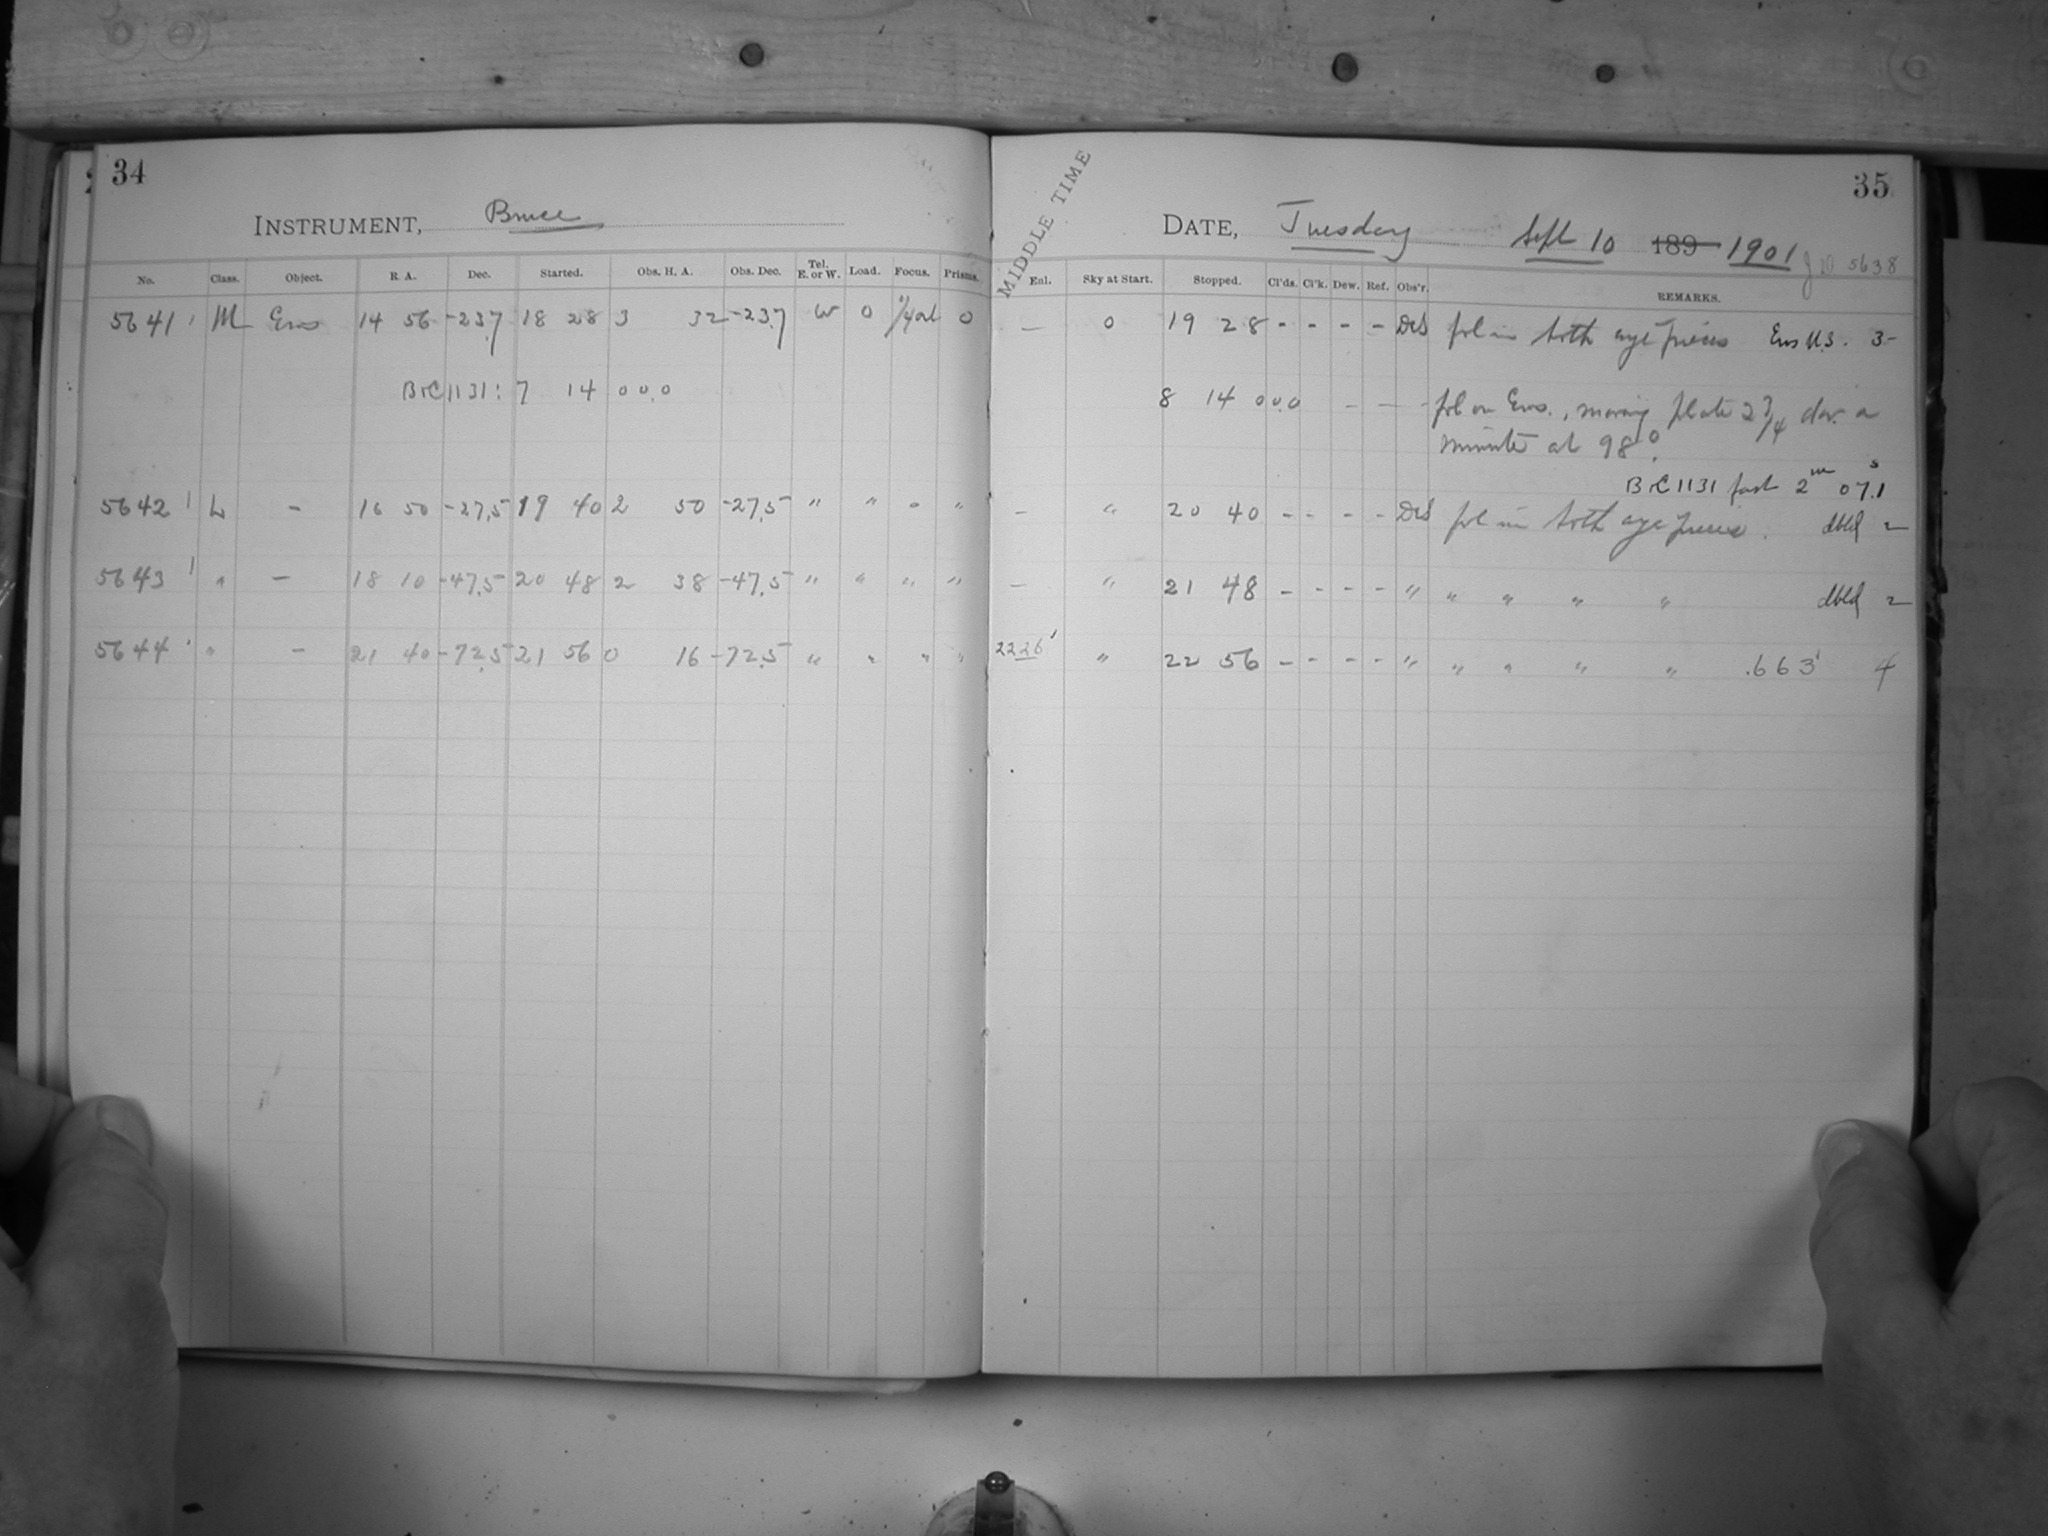 34
INSTRUMENT, Bruce
No. Class. Object. R. A. Dec. Started. Obs. H. A. Obs. Dec. Tel. E. or W. Load. Focus. Prisms.
5641 M Eros 14 56 -23.7 18 28 3 32 -23.7 W 0 0
B+C 1131: 7 14 00.0
5642 L - 16 50 -27.5 19 40 2 50 -27.5 " " " "
5643 " - 18 10 -47.5 20 48 2 38 -47.5 " " " "
5644 " - 21 40 -72.5 21 56 0 16 -72.5 " " " "
35
MIDDLE TIME
DATE, Tuesday Sept 10 189 1901
J D 5638
Enl. Sky at Start. Stopped. Cl'ds. Cl'k. Dew. Ref. Obs'r. REMARKS.
— 0 19 28 - - - - fol in both eye pieces Eros U.S. 3-
8 14 00.0 - - - fol on Eros., moving plate 2 3/4 div. a
minute at 98°.
B+C 1131 fast 2m 07.1s
- " 20 40 - - - - fol in both eye pieces. dbld 2
- " 21 48 - - - - " " " " " dbld 2
22 26' " 22 56 - - - - " " " " " .663' 4